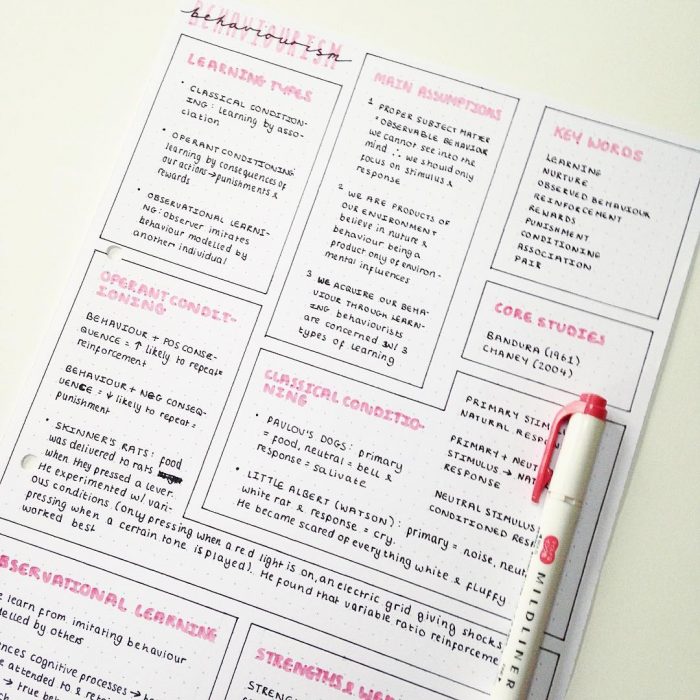 BEHAVIOURISM
behaviourism
LEARNING TYPES
• CLASSICAL CONDITION-
ING : learning by asso-
ciation
• OPERANT CONDITIONING:
learning by consequences of
our actions → punishments &
rewards
• OBSERVATIONAL LEARNI-
NG: observer imitates
behaviour modelled by
another individual
MAIN ASSUMPTIONS
1 PROPER SUBJECT MATTER
= OBSERVABLE BEHAVIOUR
we cannot see into the
mind ∴ we should only
focus on stimulus &
response
2 WE ARE PRODUCTS OF
OUR ENVIRONMENT
believe in nuture &
behaviour being a
product only of environ-
mental influences
3 WE ACQUIRE OUR BEHA-
VIOUR THROUGH LEARN-
ING behaviourists
are concerned w/ 3
types of learning
KEY WORDS
LEARNING
NURTURE
OBSERVED BEHAVIOUR
REINFORCEMENT
REWARDS
PUNISHMENT
CONDITIONING
ASSOCIATION
PAIR
CORE STUDIES
BANDURA (1961)
CHANEY (2004)
OPERANT CONDIT-
IONING
BEHAVIOUR + POS CONSE-
QUENCE = ↑ likely to repeat =
reinforcement
BEHAVIOUR + NEG CONSEQ-
UENCE = ↓ likely to repeat =
punishment
• SKINNER'S RATS: food
was delivered to rats
when they pressed a lever.
He experimented w/ vari-
ous conditions (only pressing when a red light is on, an electric grid giving shocks,
pressing when a certain tone is played). He found that variable ratio reinforceme
worked best
CLASSICAL CONDITIO-
NING
• PAVLOV'S DOGS: primary
= food, neutral = bell &
response = salivate
• LITTLE ALBERT (WATSON) : primary = noise, neut
white rat & response = cry.
He became scared of everything white & fluffy
PRIMARY STIM
NATURAL RESPON
PRIMARY + NEUT
STIMULUS → NAT
RESPONSE
NEUTRAL STIMULUS
CONDITIONED RES
OBSERVATIONAL LEARNING
learn from imitating behaviour
delled by others
ences cognitive processes →
attended to & ret
→ true be
STRENGTHS & WE
STRENGTHS
MILDLINER